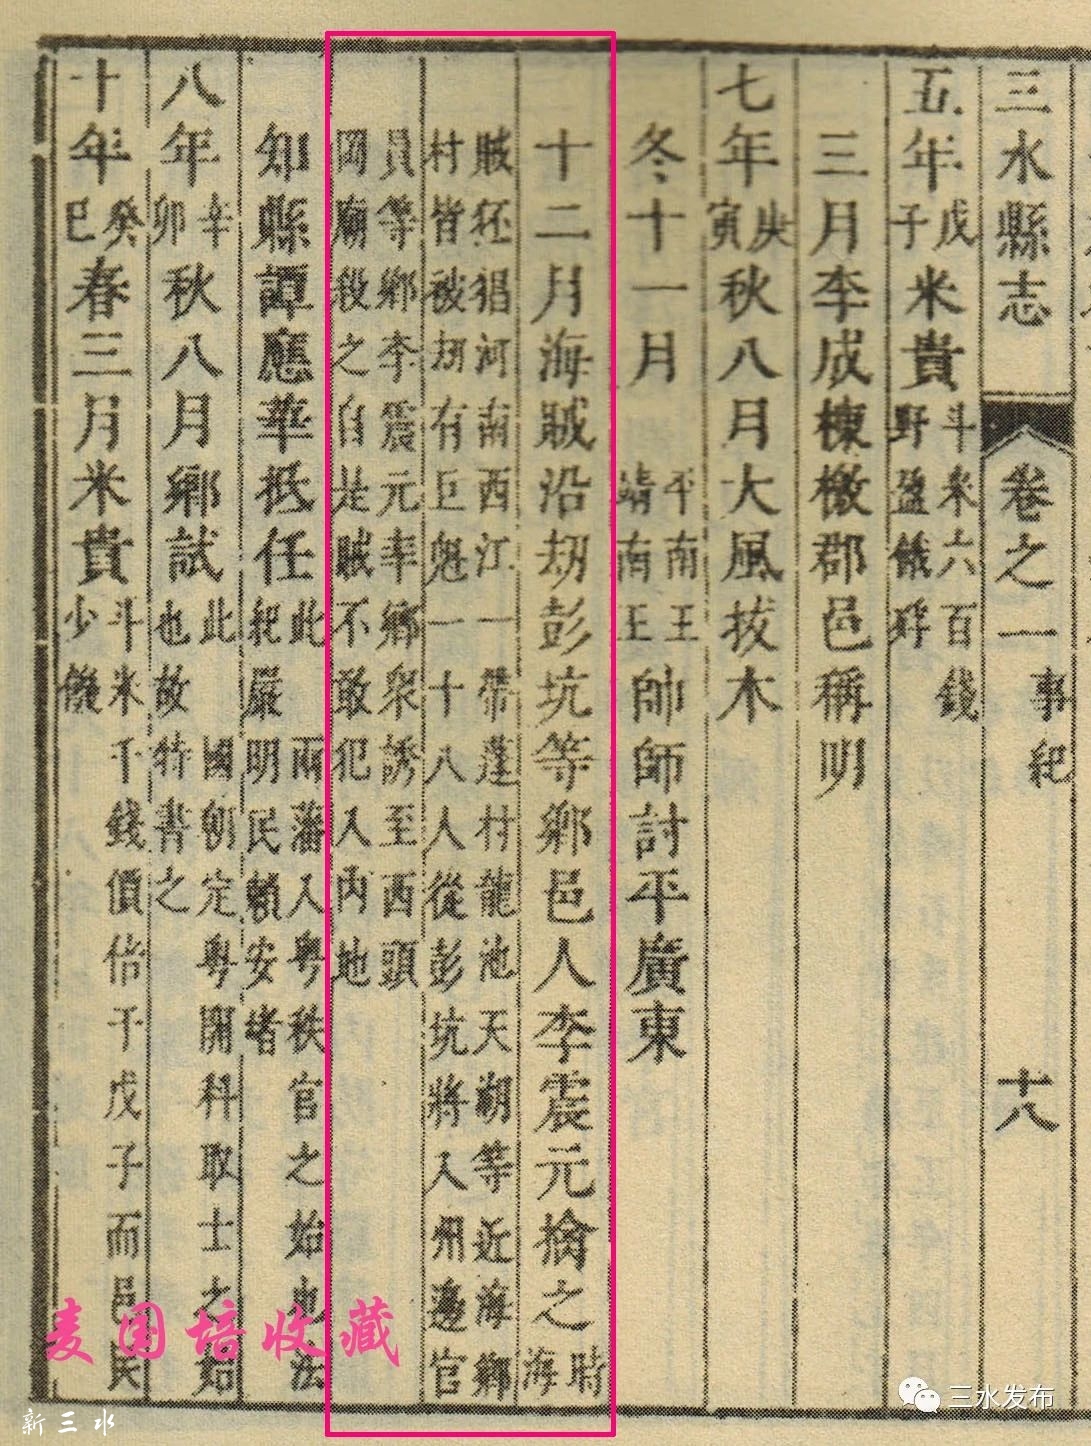 三水縣志 卷之一 事紀 十八
五年戊子米貴斗米六百錢野盈餓殍
三月李成棟檄郡邑稱明
七年庚寅秋八月大風拔木
冬十一月平南王靖南王帥師討平廣東
十二月海賊沿刼彭坑等鄉邑人李震元擒之時海
賊狂猖河南西江一帶蓬村龍池天湖等近海鄉
村皆被刼有巨魁一十八人從彭坑將入州邊官
員等鄉李震元率鄉衆誘至西頭
岡廟殺之自是賊不敢犯入內地
知縣譚應華抵任此兩藩入粤秩官之始也法
紀嚴明民頼安堵
八年辛卯秋八月鄉試此國朝定粤開科取士之始
也故特書之
十年癸巳春三月米貴斗米千錢價倍于戊子而邑民
少饑
麦国培收藏
新三水
三水发布